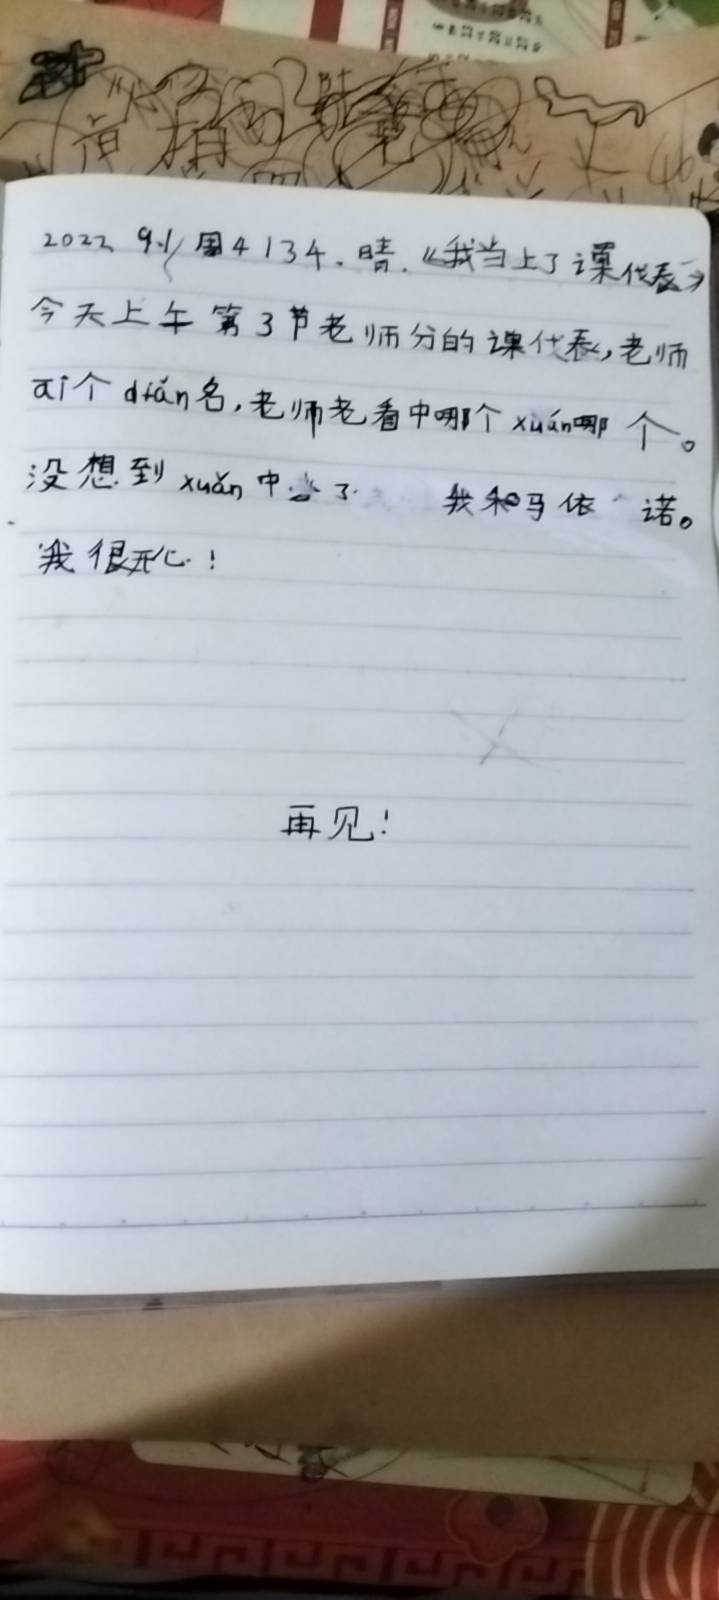 2022 9.1 周4 134. 晴.《我当上了课代表》
今天上午第3节老师分的课代表,老师
āi个diǎn名,老师老看中哪个xuán哪个。
没想到xuǎn中了我和马依诺。
我很开心!
再见!